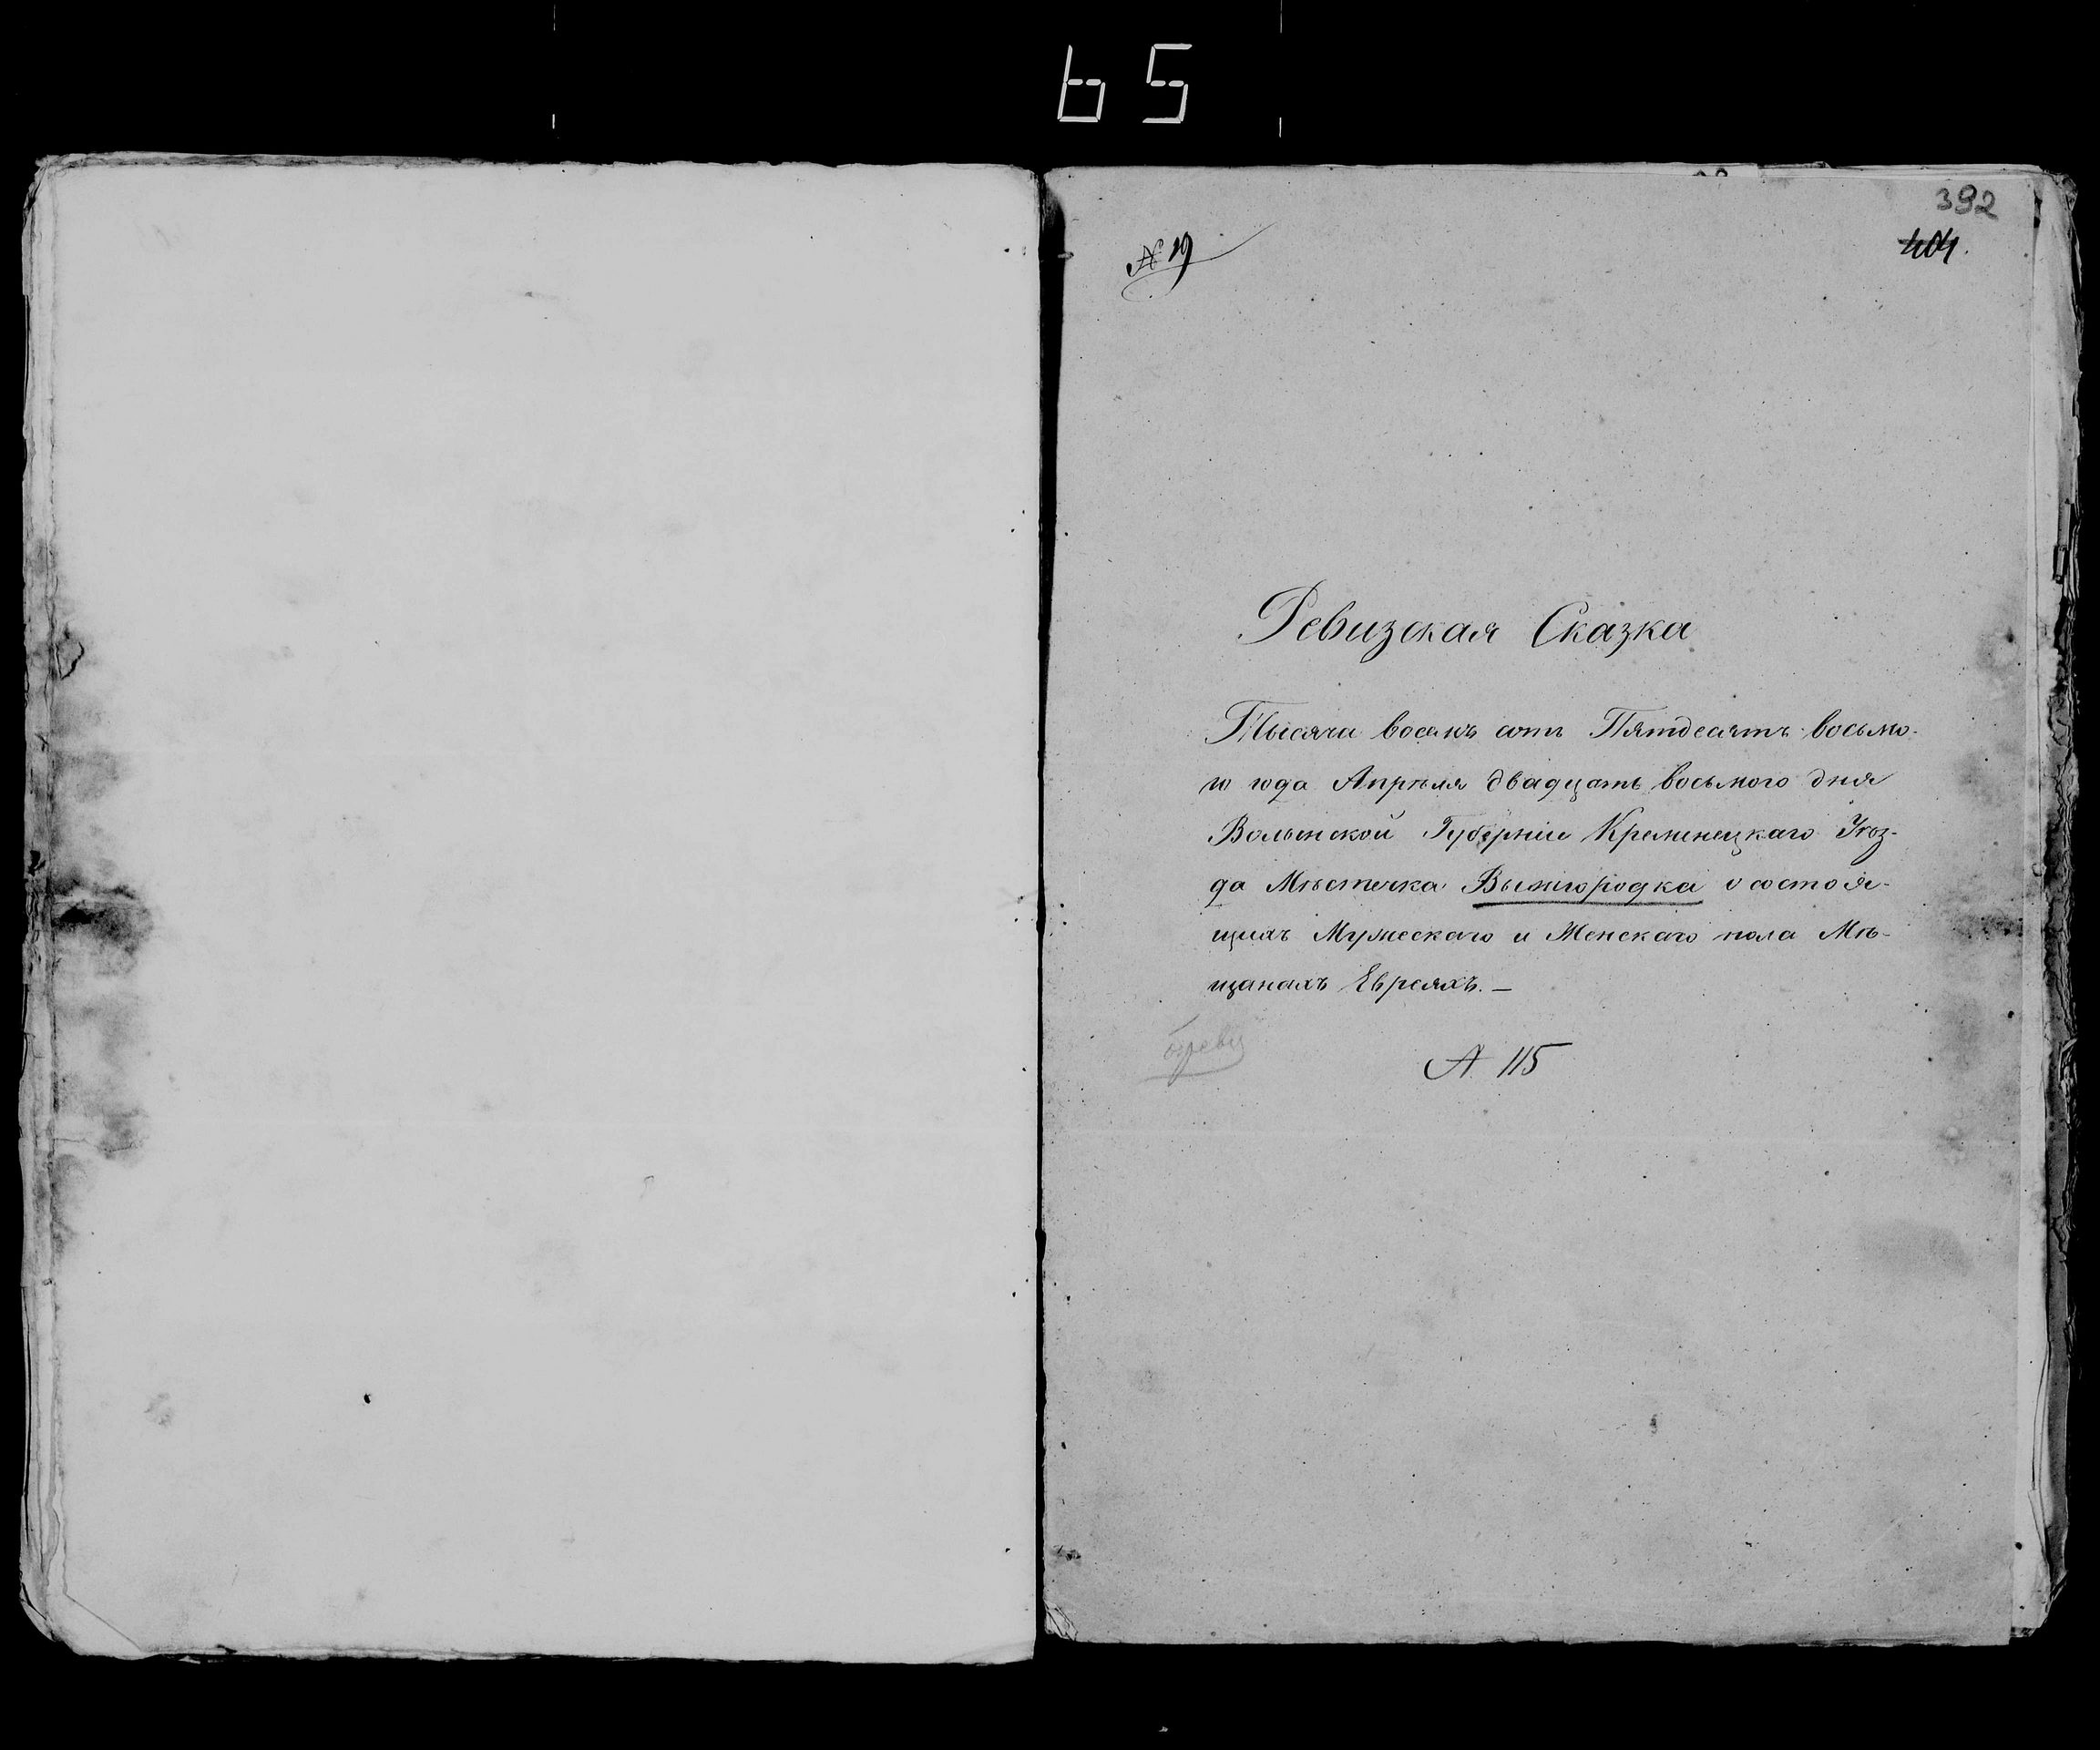 65
392
404.
№ 19
Ревизская Сказка
Тысяча восемь сотъ Пятдесятъ восьмо-
го года Апрѣля двадцать восьмого дня
Волынской Губерніи Кременецкаго Уѣз-
да Мѣстечка Вышгородка о состоя-
щихъ Мужескаго и Женскаго пола Мѣ-
щанахъ Евреяхъ. —
А 115